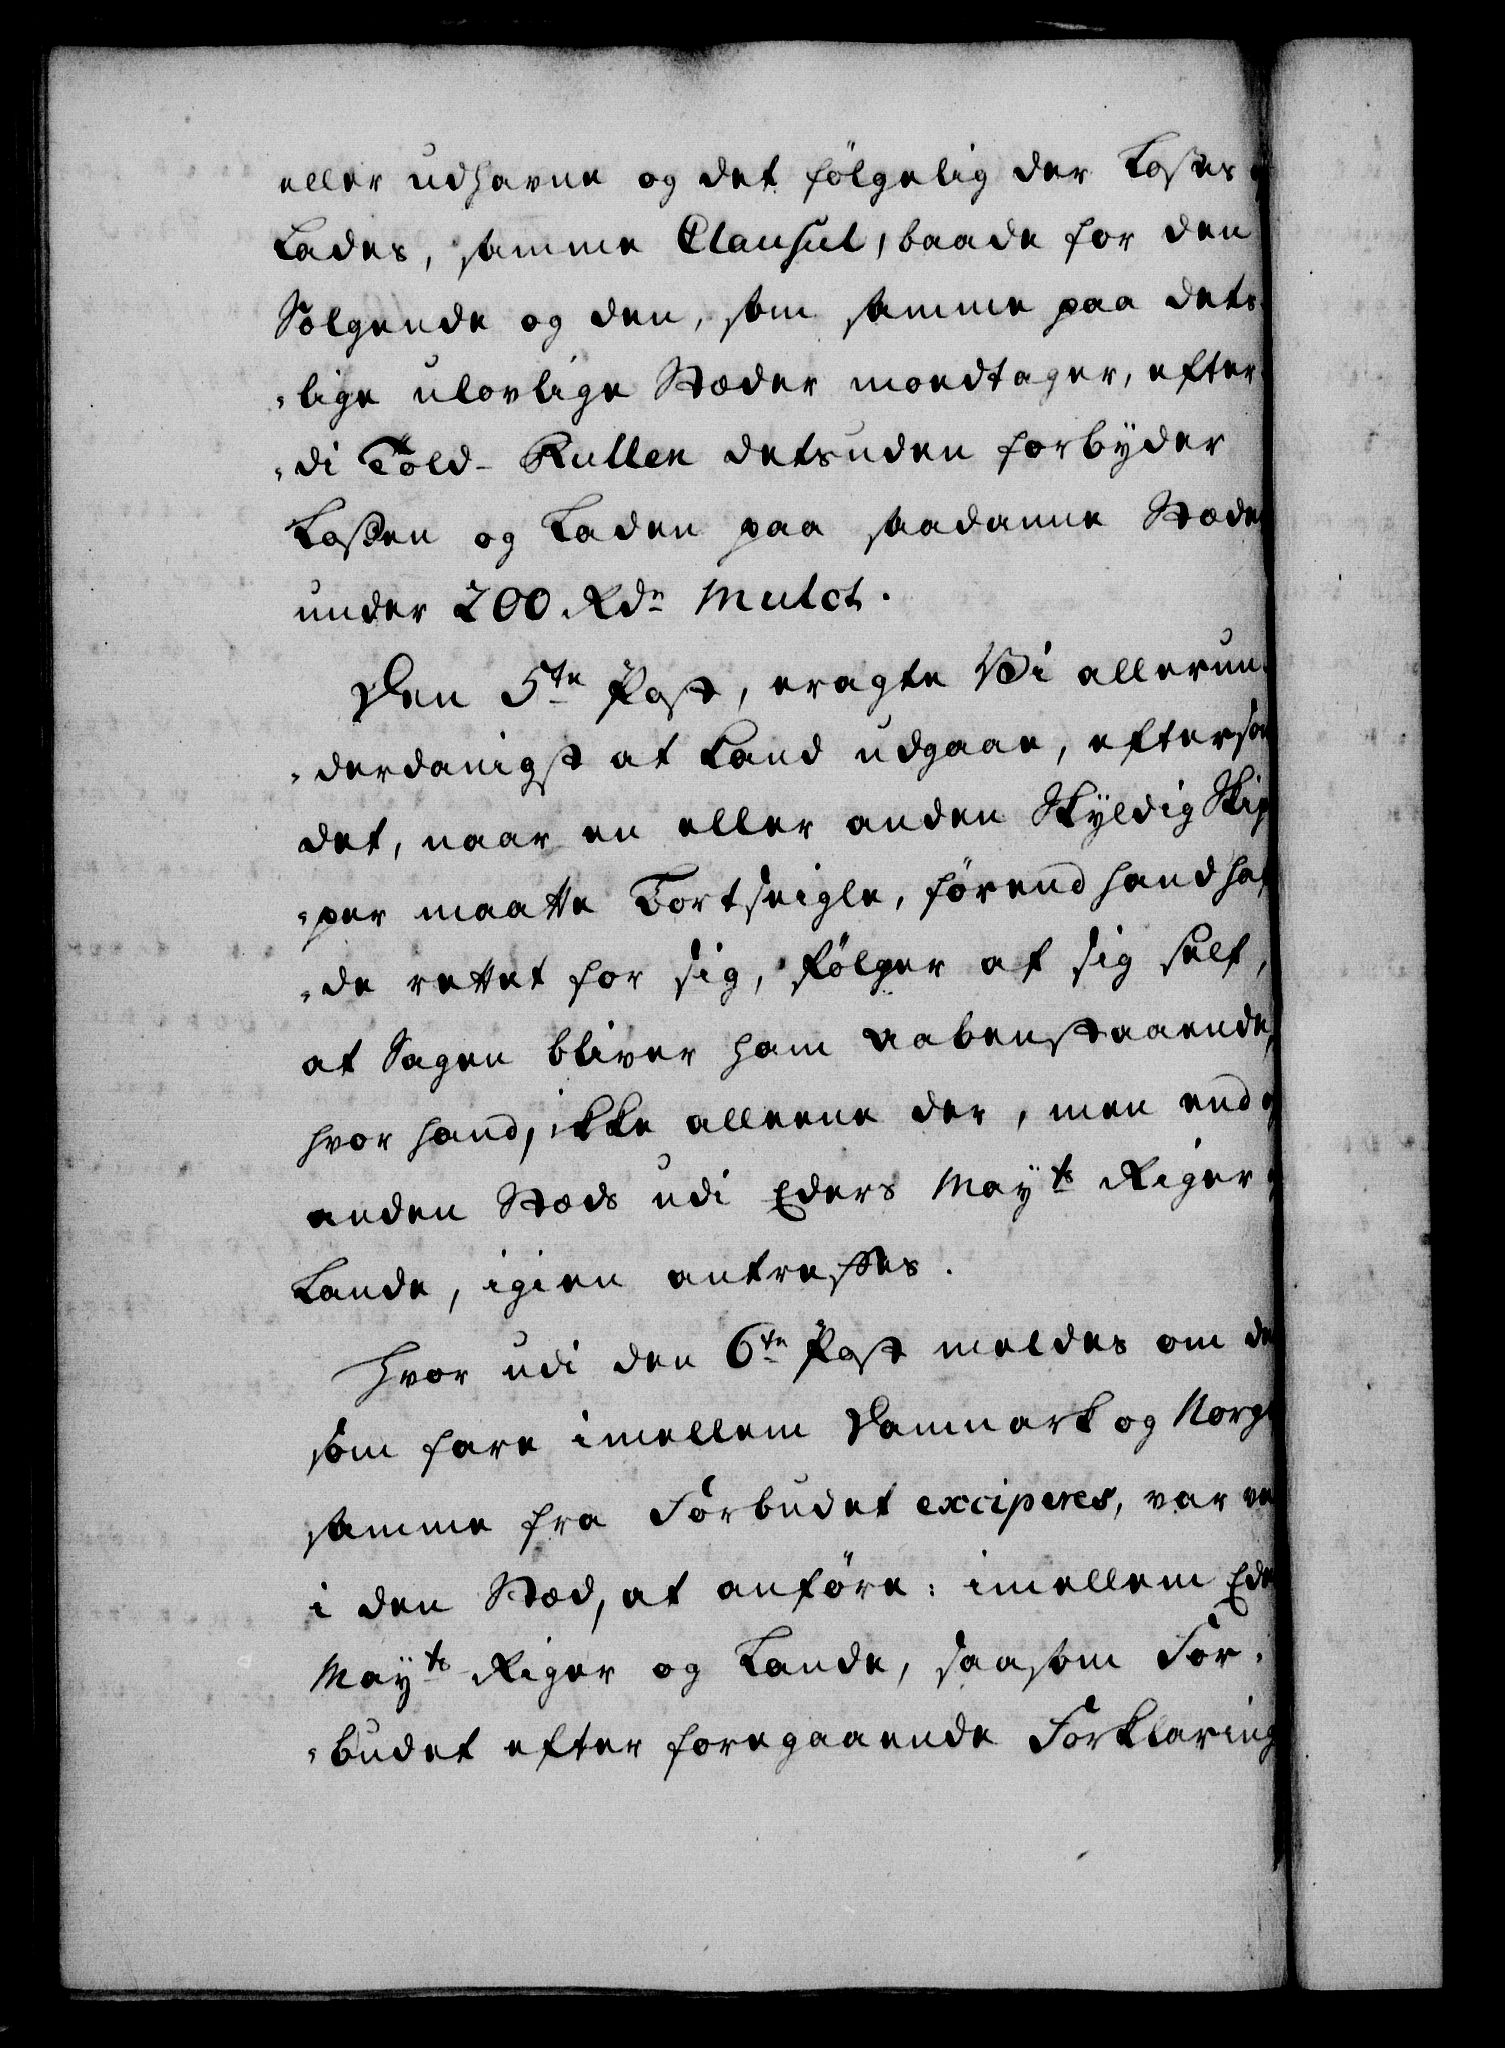 eller udhavne og det følgelig der Loßes
Lades, samme Clausul, baade for den
Sølgende og den, som samme paa dets¬
¬lige ulovlige Stæder moedtager, efter¬
¬di Told-Rullen detsuden forbÿder
Loßen og Laden paa saadanne Stæder
under 200 Rdr Mulct.
Den 5te Post, eragte Vi allerun¬
¬derdanigst at kand udgaae, eftersom
det, naar en eller anden Skÿldig Skip
¬per maatte Bortseigle, førend hand haf
¬de rettet for sig, følger af sig self,
at Sagen bliver ham aabenstaaende,
hvor hand, ikke alleene der, men end
anden Stæds udi Eders Maÿts Riger
Lande, igien antreffes.
Hvor udi den 6te Post meldes om de
som fare imellem Danmark og Norge
samme fra Forbudet exciperes, var
i den Stæd, at anføre: imellem Ede
Maÿts Riger og Lande, saasom For¬
¬budet efter foregaaende Forklaring